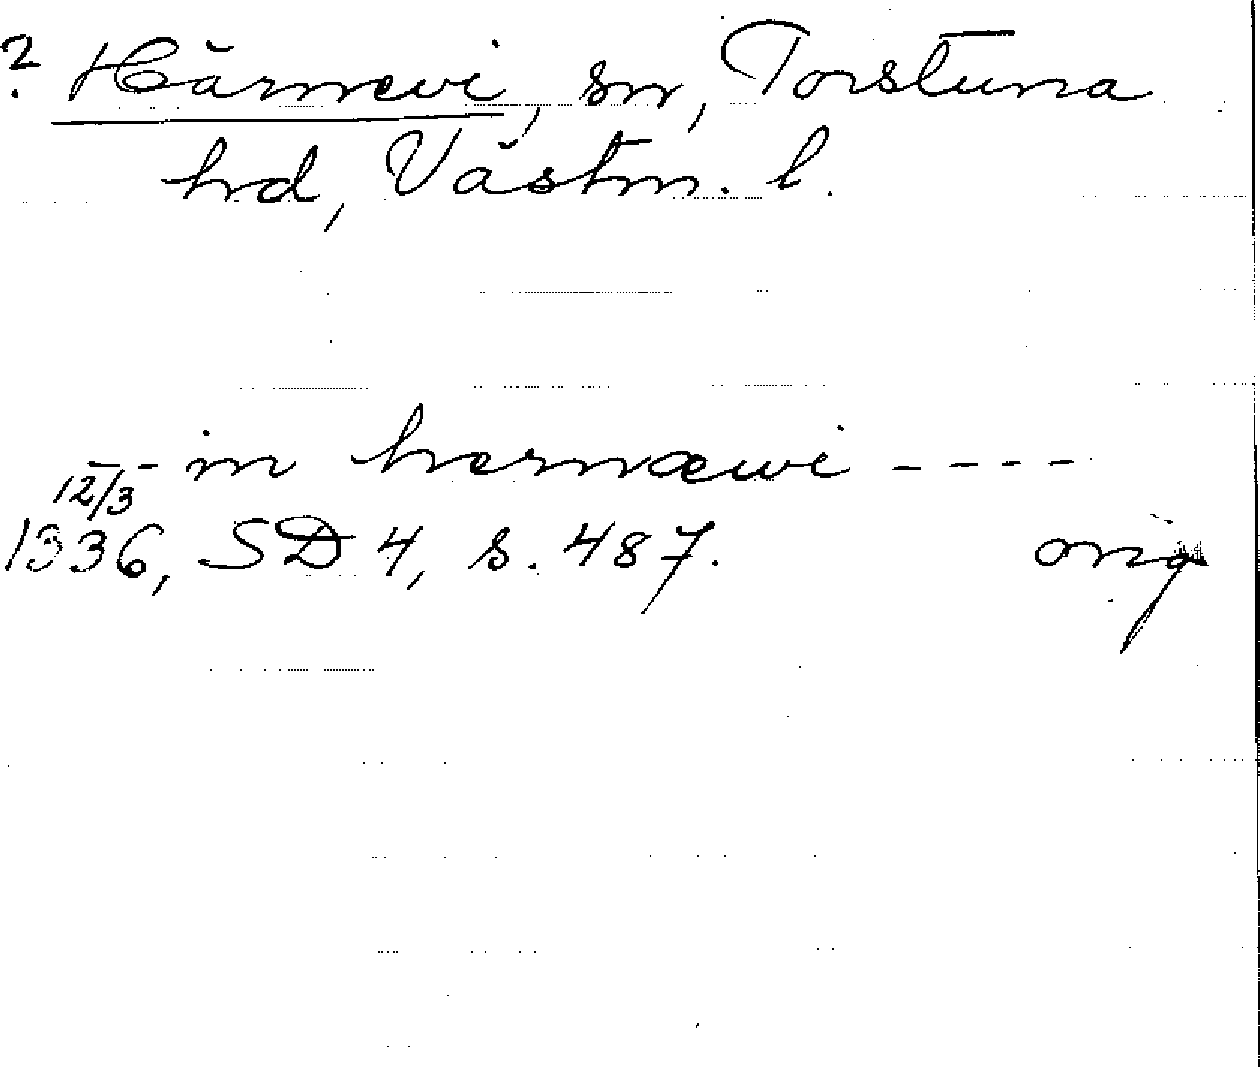 ? Härnevi, sn, Torstuna
hd, Västm. l.
- - in hernæwi - - - -
12/3 1336, SD 4, s. 487. orig